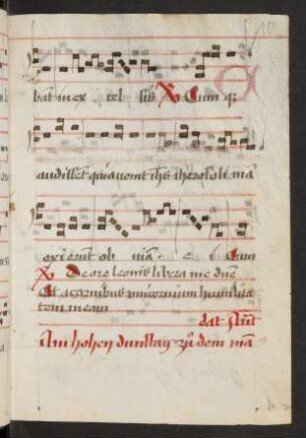 bat in ex cel sis Cum
audisset quia venit ihs iherosoli
exierunt ob
De ore leonis libera me dne
Et a cornibus unicornium humilita
tem meam
Am hohen dunstag zů dem